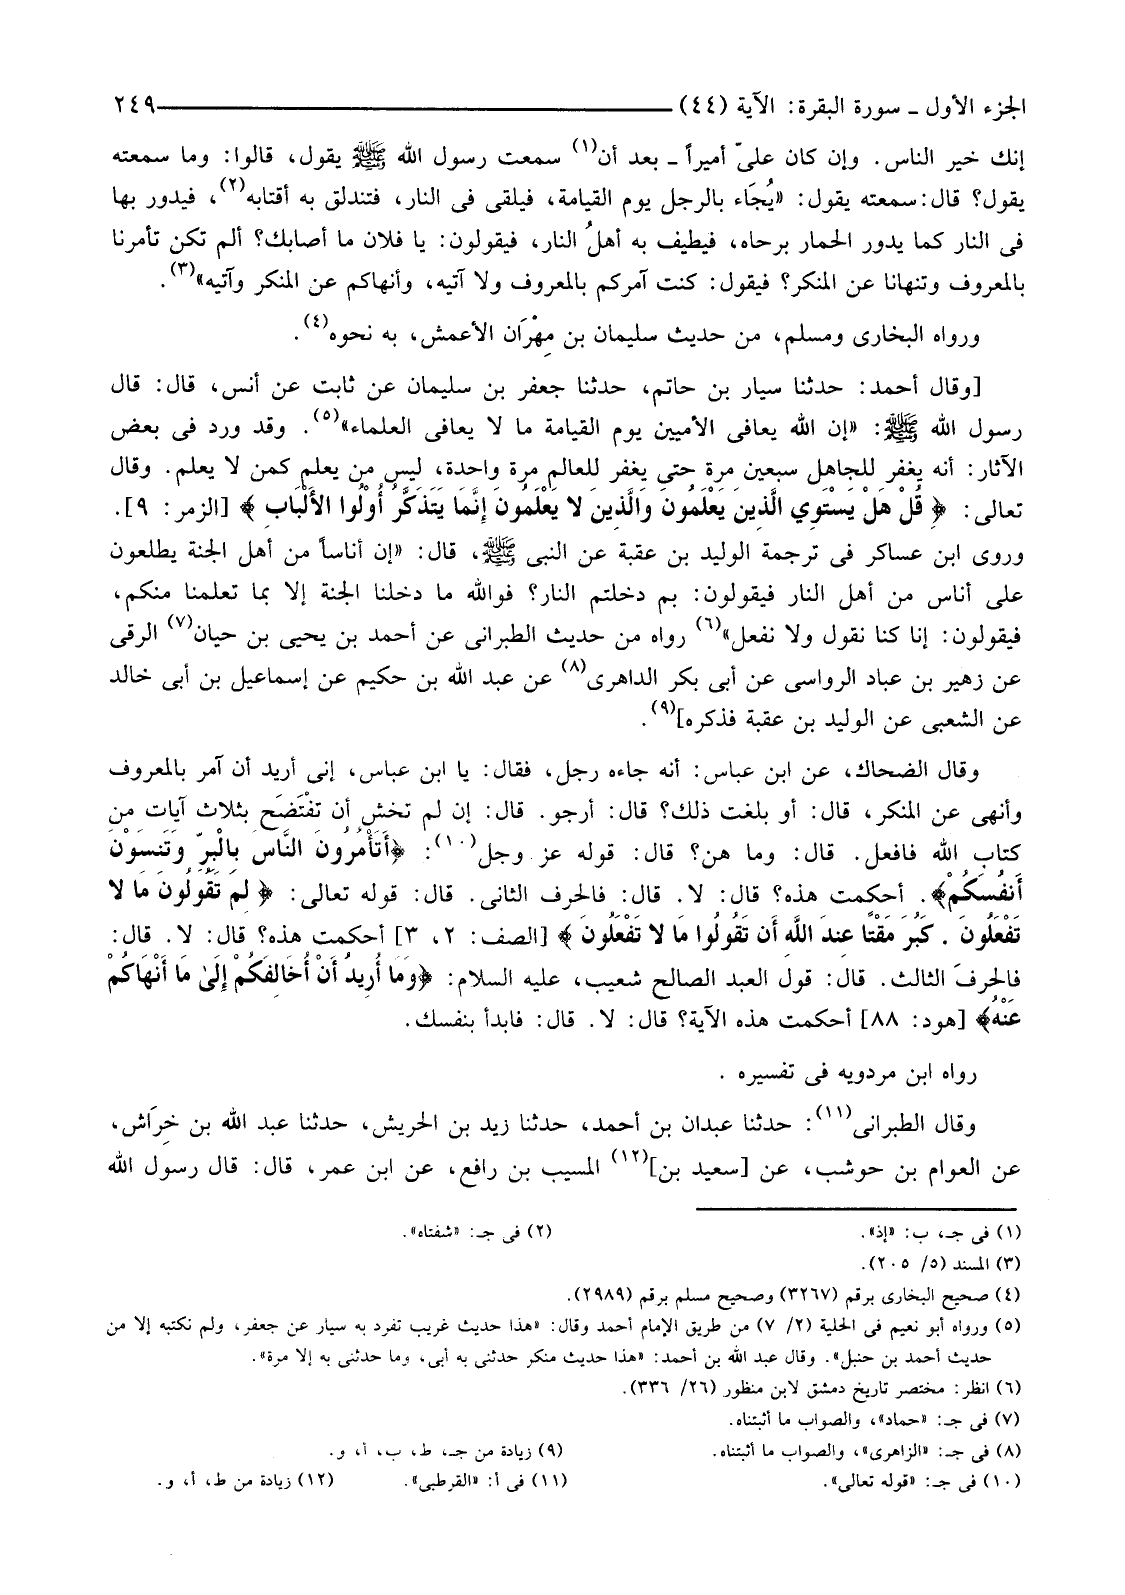 الجزء الأول ـ سورة البقرة: الآية (٤٤) ٢٤٩
إنك خير الناس. وإن كان علىّ أميراً ـ بعد أن(١) سمعت رسول الله ﷺ يقول، قالوا: وما سمعته
يقول؟ قال: سمعته يقول: «يُجَاء بالرجل يوم القيامة، فيلقى فى النار، فتندلق به أقتابه(٢)، فيدور بها
فى النار كما يدور الحمار برحاه، فيطيف به أهلُ النار، فيقولون: يا فلان ما أصابك؟ ألم تكن تأمرنا
بالمعروف وتنهانا عن المنكر؟ فيقول: كنت آمركم بالمعروف ولا آتيه، وأنهاكم عن المنكر وآتيه»(٣).
ورواه البخارى ومسلم، من حديث سليمان بن مِهْرَان الأعمش، به نحوه(٤).
[وقال أحمد: حدثنا سيار بن حاتم، حدثنا جعفر بن سليمان عن ثابت عن أنس، قال: قال
رسول الله ﷺ: «إن الله يعافى الأميين يوم القيامة ما لا يعافى العلماء»(٥). وقد ورد فى بعض
الآثار: أنه يغفر للجاهل سبعين مرة حتى يغفر للعالم مرة واحدة، ليس من يعلم كمن لا يعلم. وقال
تعالى: ﴿ قُلْ هَلْ يَسْتَوِي الَّذِينَ يَعْلَمُونَ وَالَّذِينَ لا يَعْلَمُونَ إِنَّمَا يَتَذَكَّرُ أُولُوا الأَلْبَابِ ﴾ [الزمر: ٩].
وروى ابن عساكر فى ترجمة الوليد بن عقبة عن النبى ﷺ، قال: «إن أناساً من أهل الجنة يطلعون
على أناس من أهل النار فيقولون: بم دخلتم النار؟ فوالله ما دخلنا الجنة إلا بما تعلمنا منكم،
فيقولون: إنا كنا نقول ولا نفعل»(٦) رواه من حديث الطبرانى عن أحمد بن يحيى بن حيان(٧) الرقى
عن زهير بن عباد الرواسى عن أبى بكر الداهرى(٨) عن عبد الله بن حكيم عن إسماعيل بن أبى خالد
عن الشعبى عن الوليد بن عقبة فذكره](٩).
وقال الضحاك، عن ابن عباس: أنه جاءه رجل، فقال: يا ابن عباس، إنى أريد أن آمر بالمعروف
وأنهى عن المنكر، قال: أو بلغت ذلك؟ قال: أرجو. قال: إن لم تخش أن تفْتَضَح بثلاث آيات من
كتاب الله فافعل. قال: وما هن؟ قال: قوله عز وجل(١٠): ﴿أَتَأْمُرُونَ النَّاسَ بِالْبِرِّ وَتَنسَوْنَ
أَنفُسَكُمْ﴾. أحكمت هذه؟ قال: لا. قال: فالحرف الثانى. قال: قوله تعالى: ﴿ لِمَ تَقُولُونَ مَا لا
تَفْعَلُونَ . كَبُرَ مَقْتًا عِندَ اللَّهِ أَن تَقُولُوا مَا لا تَفْعَلُونَ ﴾ [الصف: ٢، ٣] أحكمت هذه؟ قال: لا. قال:
فالحرفَ الثالث. قال: قول العبد الصالح شعيب، عليه السلام: ﴿وَمَا أُرِيدُ أَنْ أُخَالِفَكُمْ إِلَىٰ مَا أَنْهَاكُمْ
عَنْهُ﴾ [هود: ٨٨] أحكمت هذه الآية؟ قال: لا. قال: فابدأ بنفسك.
رواه ابن مردويه فى تفسيره .
وقال الطبرانى(١١): حدثنا عبدان بن أحمد، حدثنا زيد بن الحريش، حدثنا عبد الله بن خِرَاش،
عن العوام بن حوشب، عن [سعيد بن](١٢) المسيب بن رافع، عن ابن عمر، قال: قال رسول الله
(١) فى جـ، ب: «إذ». (٢) فى جـ: «شفتاه».
(٣) المسند (٥/ ٢٠٥).
(٤) صحيح البخارى برقم (٣٢٦٧) وصحيح مسلم برقم (٢٩٨٩).
(٥) ورواه أبو نعيم فى الحلية (٢/ ٧) من طريق الإمام أحمد وقال: «هذا حديث غريب تفرد به سيار عن جعفر، ولم نكتبه إلا من
حديث أحمد بن حنبل». وقال عبد الله بن أحمد: «هذا حديث منكر حدثنى به أبى، وما حدثنى به إلا مرة».
(٦) انظر: مختصر تاريخ دمشق لابن منظور (٢٦/ ٣٣٦).
(٧) فى جـ: «حماد»، والصواب ما أثبتناه.
(٨) فى جـ: «الزاهرى»، والصواب ما أثبتناه. (٩) زيادة من جـ، ط، ب، أ، و.
(١٠) فى جـ: «قوله تعالى». (١١) فى أ: «القرطبى». (١٢) زيادة من ط، أ، و.